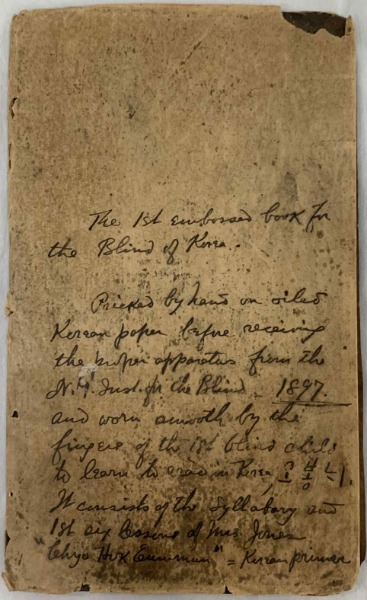 The 1st embossed book for
the Blind of Korea.
Pricked by hand on oiled
Korean paper before receiving
the proper apparatus from the
N.Y. Inst. for the Blind - 1897.
and worn smooth by the
fingers of the 1st blind child
to learn to read in Korea,
It consists of the syllabary and
1st six lessons of Mrs. Jones
Cho Hak Eunmun" = Korean primer